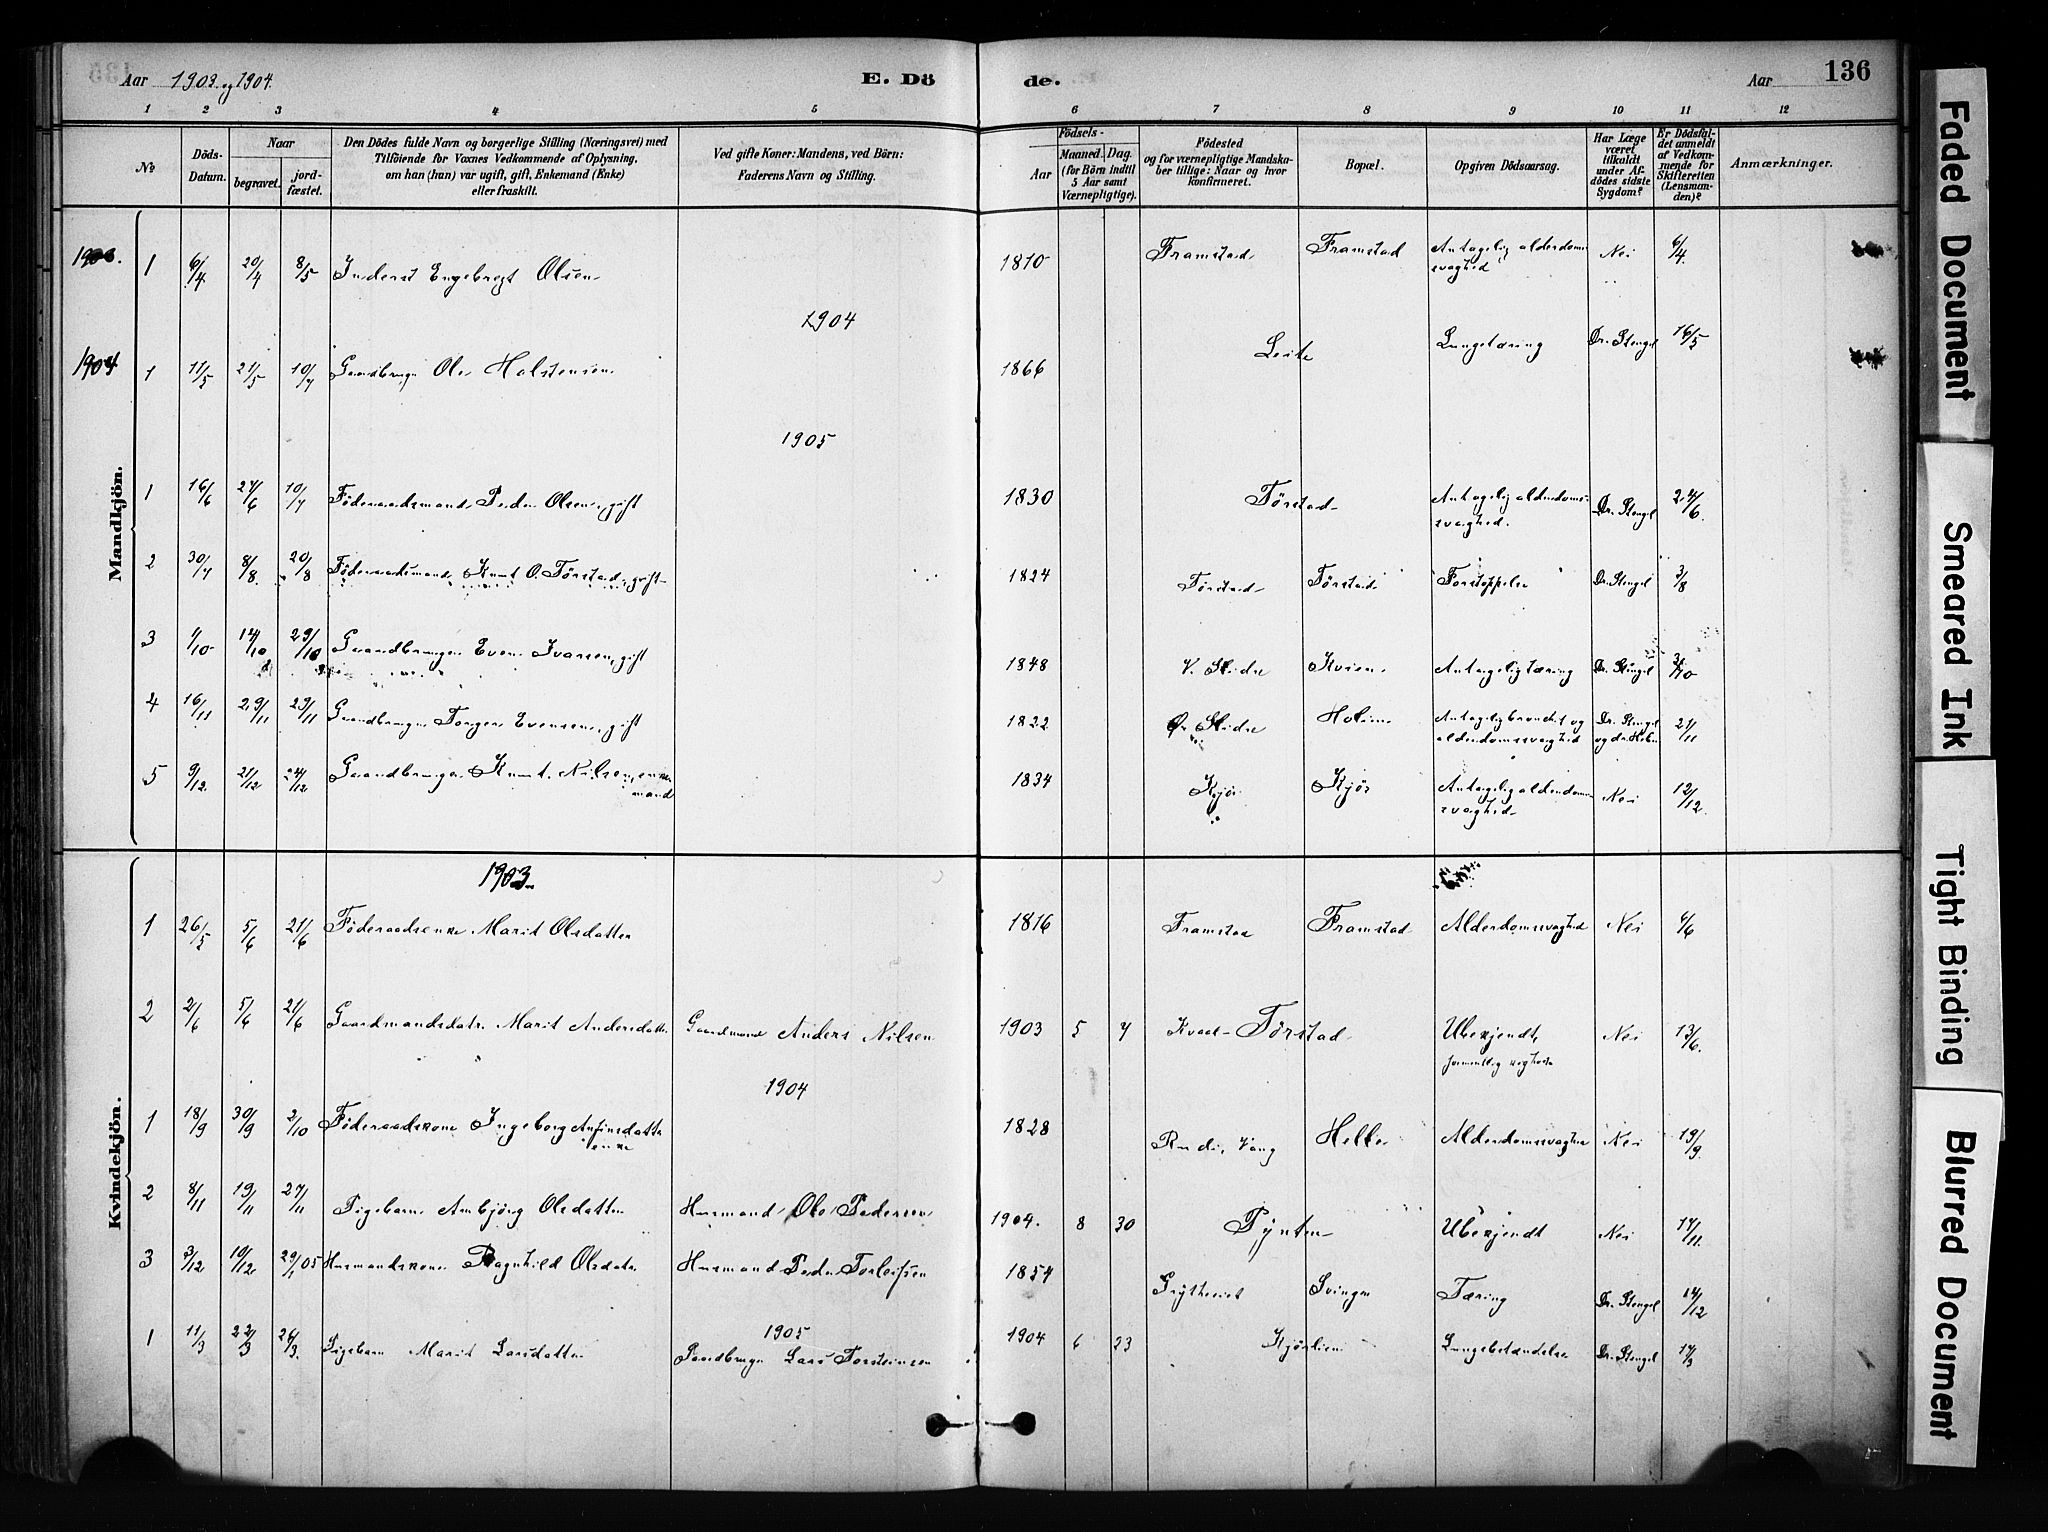 Aar 1903 og 1904.
E. Dö de.
Aar 136
1 2 3 4 5 6 7 8 9 10 11 12
No
Döds-Datum.
Naar
begravet.
jordfæstet.
Den Dödes fulde Navn og borgerlige Stilling (Næringsvei) med
Tilföiende for Voxnes Vedkommende af Oplysning,
om han (hun) var ugift, gift, Enkemand (Enke)
eller fraskilt.
Ved gifte Koner: Mandens, ved Börn:
Faderens Navn og Stilling.
Födsels-
Aar
Maaned. Dag.
(for Börn indtil
5 Aar samt
Værnepligtige).
Födested
og for værnepligtige Mandskaber tillige: Naar og hvor
konfirmeret.
Bopæl.
Opgiven Dödsaarsag.
Har Læge
været
tilkaldt
under Afdödes sidste
Sygdom?
Er Dödsfaldet anmeldt
af Vedkommende for
Skifteretten
(Lensmanden)?
Anmærkninger.
Mandkjön.
1903. 1 6/4 20/4 8/5 Inderst Engebregt Olsen 1810 Framstad Framstad Antagelig alderdomssvaghed Nei 6/4.
1904
1904 1 11/5 21/5 10/7 Gaardbruger Ole Holstensen 1866 Leite Lungetæring Dr. Stengel 16/5
1905
1 16/6 27/6 10/7 Föderaadsmand Peder Olsen, gift 1830 Törstad Antagelig alderdomssvaghed. Dr. Stengel 24/6.
2 30/7 8/8. 20/8 Föderaadsmand Knut O. Törstad, gift 1824 Törstad Törstad Forstoppelse Dr. Stengel 3/8
3 1/10 14/10 29/10 Gaardbruger Even Ivarsen, gift 1848 V. Slidre Kvien Antagelig tæring Dr. Stengel 3/10
4 16/11 29/11 29/11 Gaardbruger Torger Evensen, gift 1822 Ø. Slidre Holien Antagelig bronchit og alderdomssvaghed Dr. Stengel og dr. 21/11
5 9/12. 21/12 24/12 Gaardbruger Knut Nilsen, enkemand 1834 Kjös Kjös Antagelig alderdomssvaghed Nei 12/12.
Kvindekjön.
1903.
1 26/5 5/6 21/6 Föderaadsenke Marit Olsdatter 1816 Framstad Framstad Alderdomssvaghed Nei 4/6
2 2/6 5/6 21/6 Gaardmandsdatr. Marit Andersdatter Gaardmand Anders Nilsen 1903 5 7 Kvad-Törstad Ubekjendt, Nei 13/6.
1904
1 18/9 30/9 2/10 Föderaadskone Ingeborg Anfinsdatter enke 1828 Rudi, Vang Helle Alderdomssvaghed Nei 19/9.
2 8/11 19/11 27/11 Pigebarn Ambjörg Olsdatter Husmand Ole Pedersen 1904. 8 30 Pynten Ubekjendt Nei 17/11.
3 3/12 10/12 29/1 05 Husmandskone Ragnhild Olsdatr Husmand Peder Torleifsen 1854 Svingen Tæring Dr. Stengel 14/12
1905
1 11/3 22/3 26/3. Pigebarn Marit Larsdatter Gaardbruger Lars Torsteinsen 1904 6 23 Kjöslien Lungebetændelse Dr. Stengel 17/3
Faded Document
Smeared Ink
Tight Binding
Blurred Document